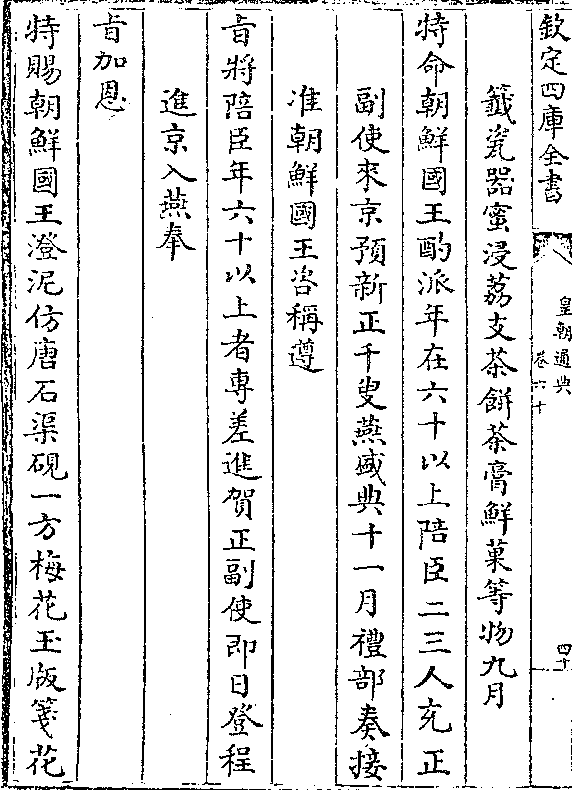 欽定四庫全書
皇朝通典
卷六十
四十
籤瓷器蜜浸荔支茶餅茶膏鮮菓等物九月
特命朝鮮國王酌派年在六十以上陪臣二三人充正
副使來京預新正千叟燕盛典十一月禮部奏接
准朝鮮國王咨稱遵
旨將陪臣年六十以上者專差進賀正副使即日登程
進京入燕奉
旨加恩
特賜朝鮮國王澄泥仿唐石渠硯一方梅花玉版箋花